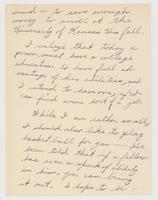 mind - to save enough
money to enroll at the
University of Kansas this fall.
I realize that today a
person must have a college
education to have full ad-
vantage of his abilities, and
I intend to have one, if I
can find some sort of a job.
While I am rather small,
I should also like to play
basket ball for you - I've
been told that if a fellow
has even a spark of ability
in him, you can bring
it out. I hope to be